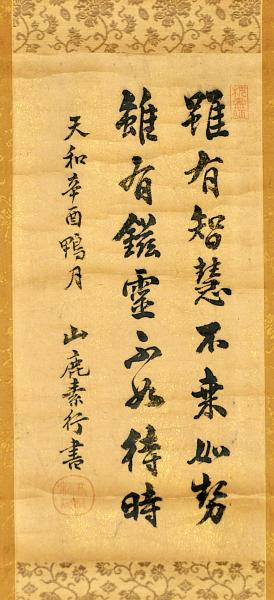 雖有智慧不乗如勢
雖有鎡霊不如待時
天和辛酉鴨月 山鹿素行書